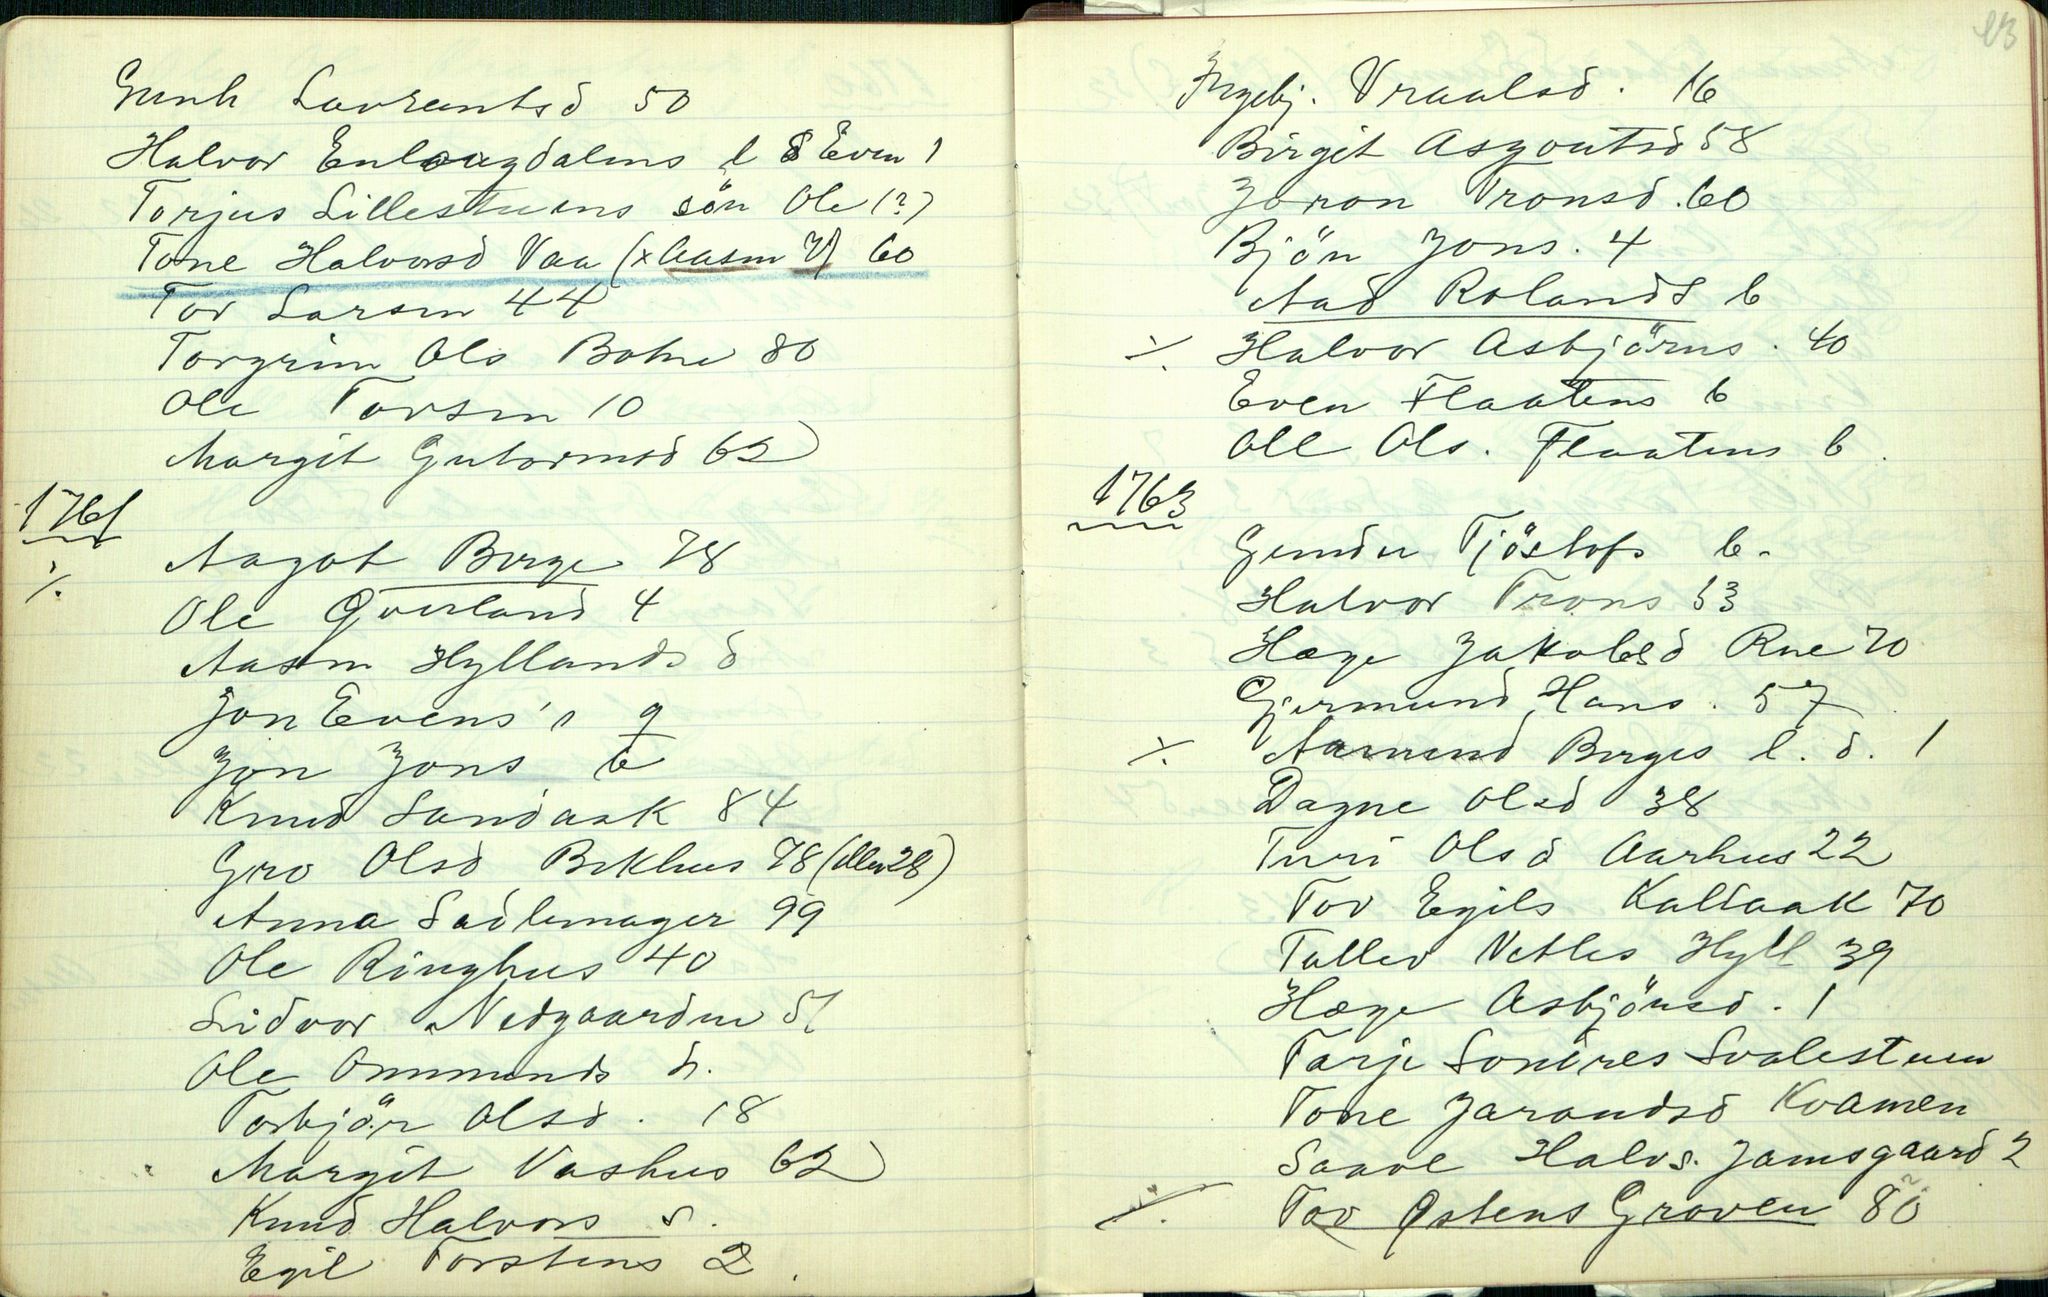 Gunh Lavrantsd 50
Halvor Enlaugdalens l d Even 1
Torjus Lillestuens sön Ole (?)
Tone Halvorsd Vaa (x Aasm V) 60
Tov Larsen 44
Torgrim Ols Bohne 80
Ole Torsen 10
Margit Gutormsd 62
1761
Aagot Berge 78
⁒ Ole Qverland 4
Aasm Hyllands d
Jon Evens's 9
Jon Jons 6
Knud Sandaak 84
Gro Olsd Bekhus 78 (eller 28)
Anna Sadlemager 99
Ole Ringhus 40
Lidvor Nedgaarden 57
Ole Ommunds
Torbjör Olsd. 18
Margit Vashus 62
Knud Halvors s.
Egil Torstens 2.
13
Ingebj. Vraalsd. 16
Birgit Asgoutsd 58
Joron Tronsd. 60
Bjön Jons. 4
Aad Rolands 6
⁒ Halvor Asbjörns. 40
Even Flaatens 6
Oll Ols. Flaatens 6.
1763
Gunder Tjöstofs 6.
Halvor Trons 53
Hæge Jakobsd Rue 70
Gjermund Hans. 57
⁒ Aamund Berges l. d. 1
Dagne Olsd 38
Turi Olsd Aarhus 22
Tov Egils Kaltaak 70
Tallev Vetles Hyll 39
Hæge Asbjönsd. 1
Tarje Sondres Svalestuen
Tone Jaroundsd Kvamen
Saave Halvs. Jamsgaard 2
⁒ Tov Østens Groven 80